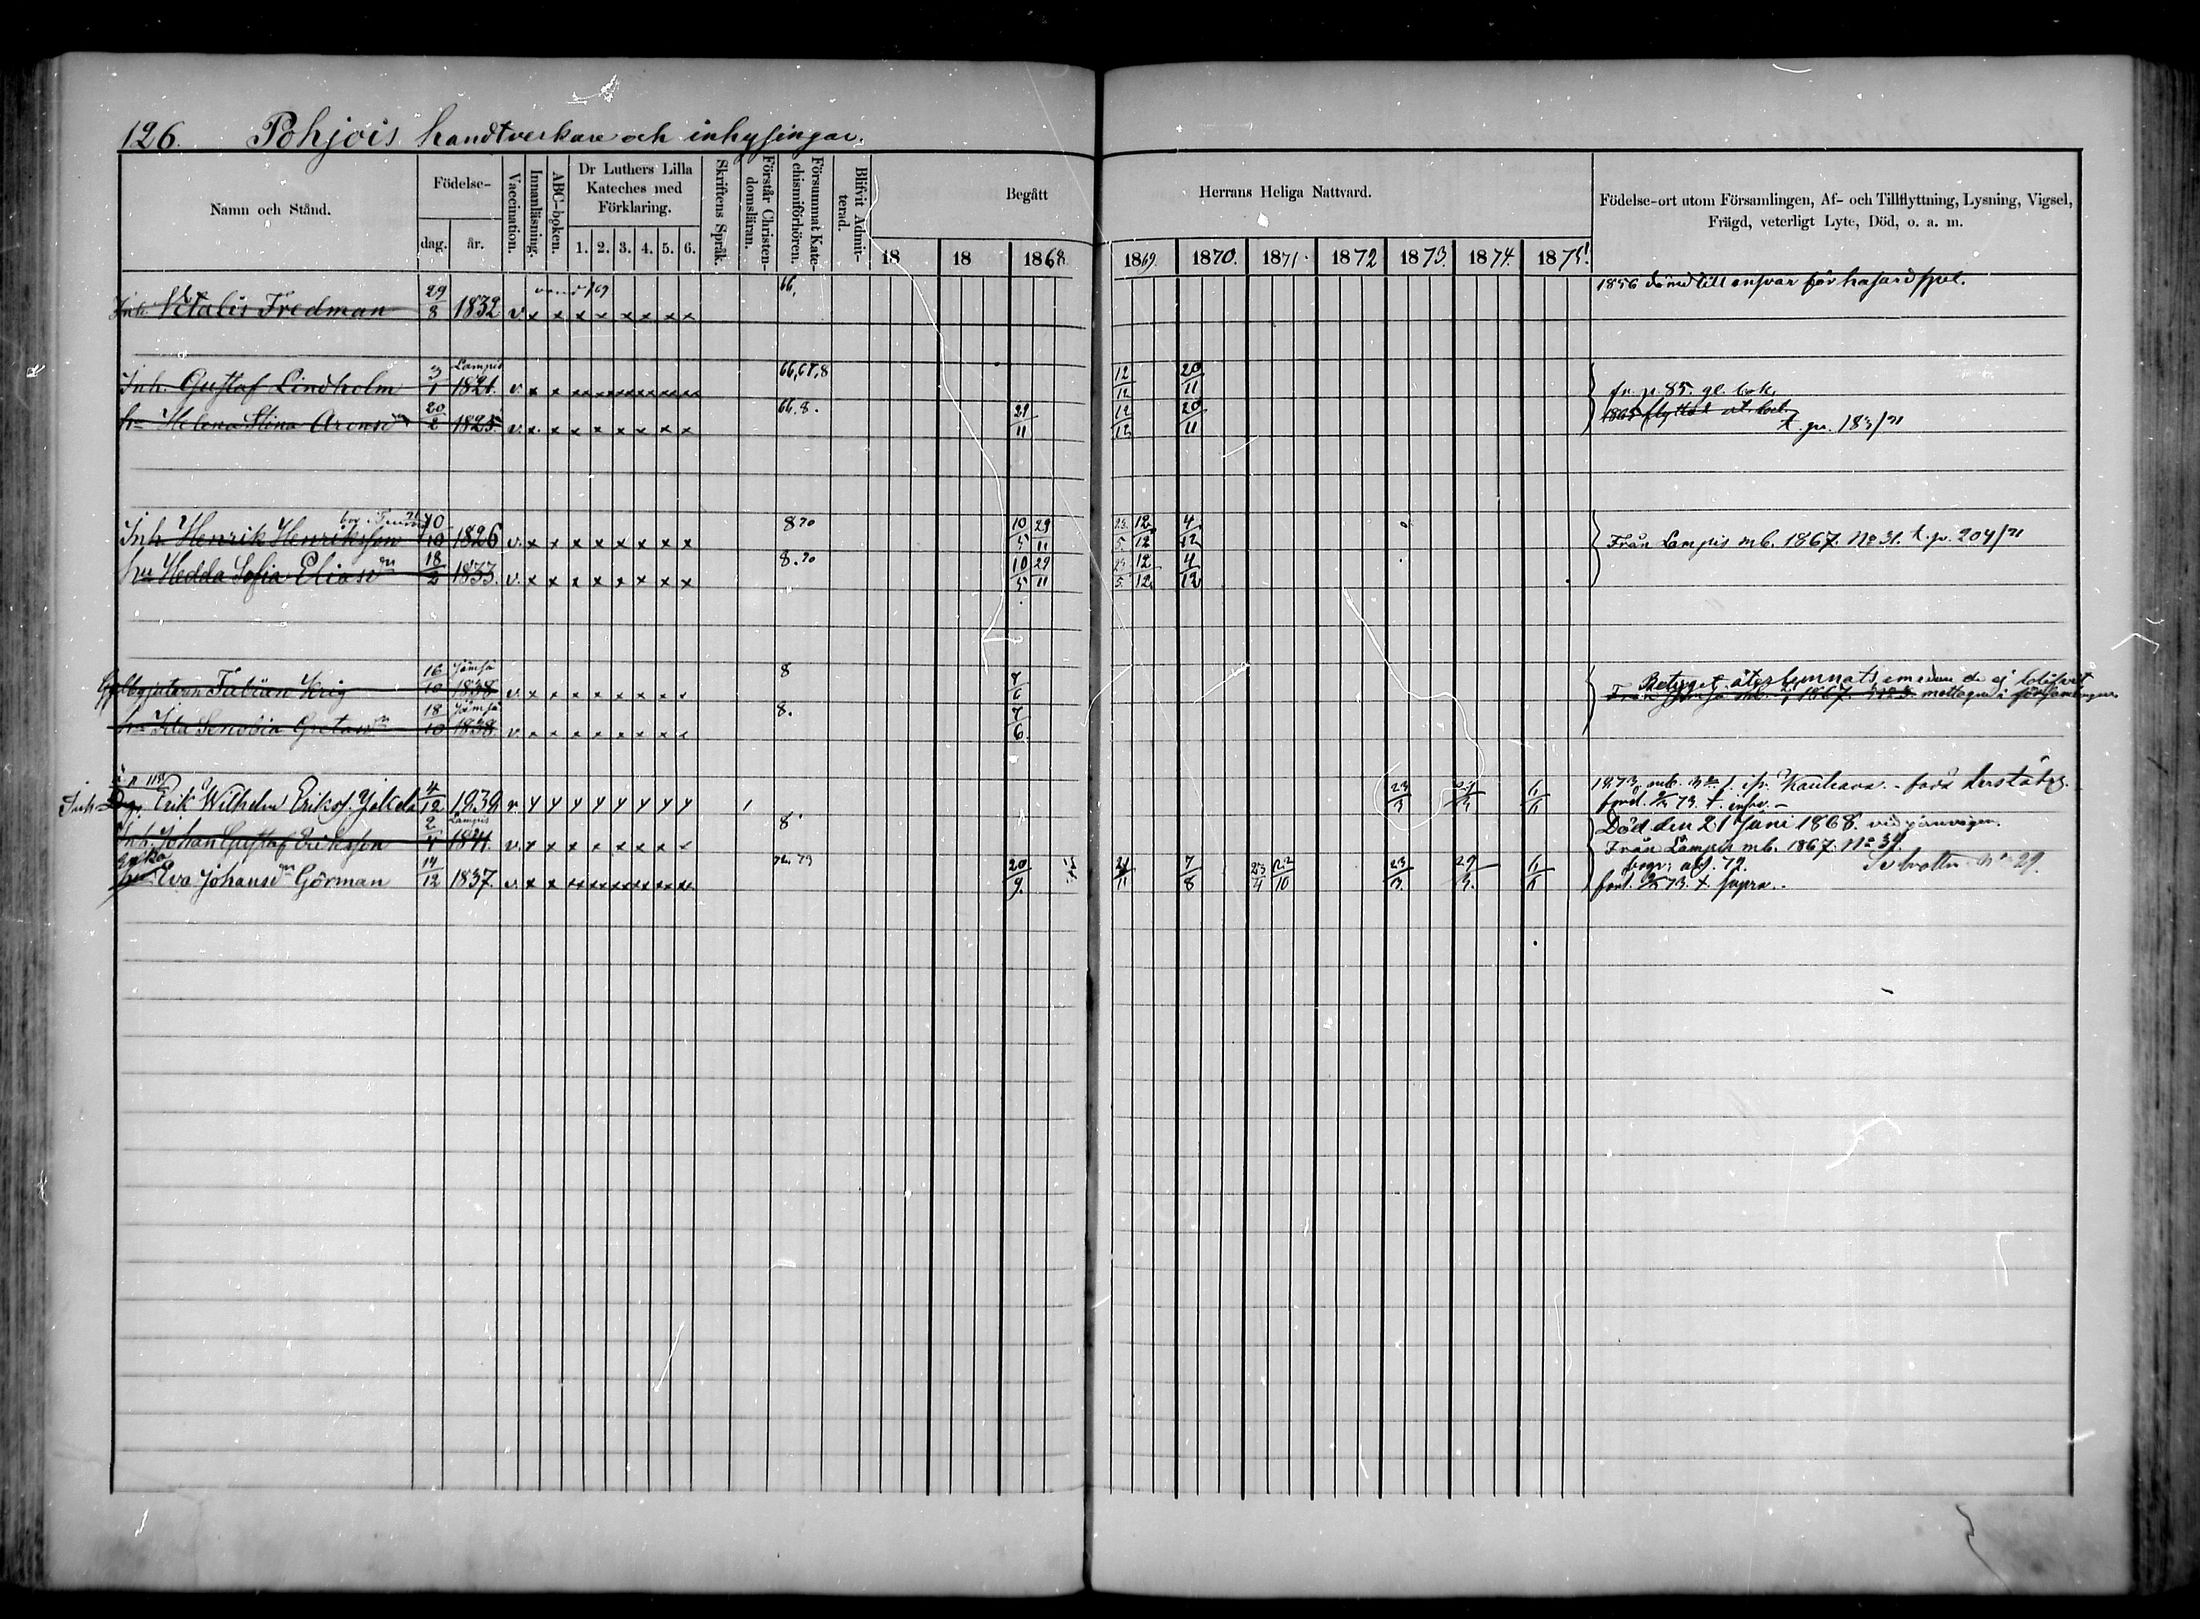 126. Pohjois handtverkare och inhysingar.
Namn och Stånd. Födelse- dag. år. Vaccination. Innanläsning. ABC-boken. Dr Luthers Lilla Kateches med Förklaring. 1. 2. 3. 4. 5. 6. Skriftens Språk. Förstår Christendomsläran. Försummat Katechismiförhören. Blifvit Admitterad. Begått Herrans Heliga Nattvard. Födelse-ort utom Församlingen, Af- och Tillflyttning, Lysning, Vigsel, Frägd, veterligt Lyte, Död, o. a. m.
18 18 1868 1869. 1870. 1871. 1872 1873. 1874. 1875
Inh. Vitalis Fredman 29/8 1832 v. x x x x x x x x 66, 1856 dömd till ansvar för hasardspel.
Inh. Gustaf Lindholm 3/1 Lampis 1821. v. 66, 67, 8 12/12 20/11 fr. p. 85. gl. bok.
hu Helena Stina Arensdr 20/2 1825. v. x. x x x x x x x 66. 8. 29/11 12/12 20/11 t. p. 183/71
Inh. Henrik Henriksson 10/10 1826 v. x x x x x x x x 8 70 10/5 29/11 23/5 12/12 4/12 Från Lampis mb. 1867. No 31. t. p. 204/71
hu Hedda Sofia Eliasdn 18/2 1833. v. x x x x x x x x 8. 70 10/5 29/11 23/5 12/12 4/12
Fabian Krig 16/10 Jämsä 1838 v. x x x x x x x x 8 7/6 Betyget återlemnats emedan de ej blifvit
Från Jämsä mb. 1867 No 3. mottagne i församlingen
hu Ida Senobia Gretasdn 18/10 Jämsä 1838 v. x x x x x x x x 8. 7/6.
Inh. Erik Wilhelm Eriks. Jokela 4/12 1839 v 23/3 6/11 1873
Inh. Johan Gustaf Eriksson 2/4 Lampis 1841. v. x x x x x x x x 8 Död den 21 Juni 1868. vid jernvägen.
Från Lampis mb. 1867. No 39.
enka Eva Johansdn Görman 14/12 1837. v. x x 72. 73 20/9. 21/11 7/8 23/4 22/10 23/3. 29/3. 6/11 No 29.
73. t. supra.